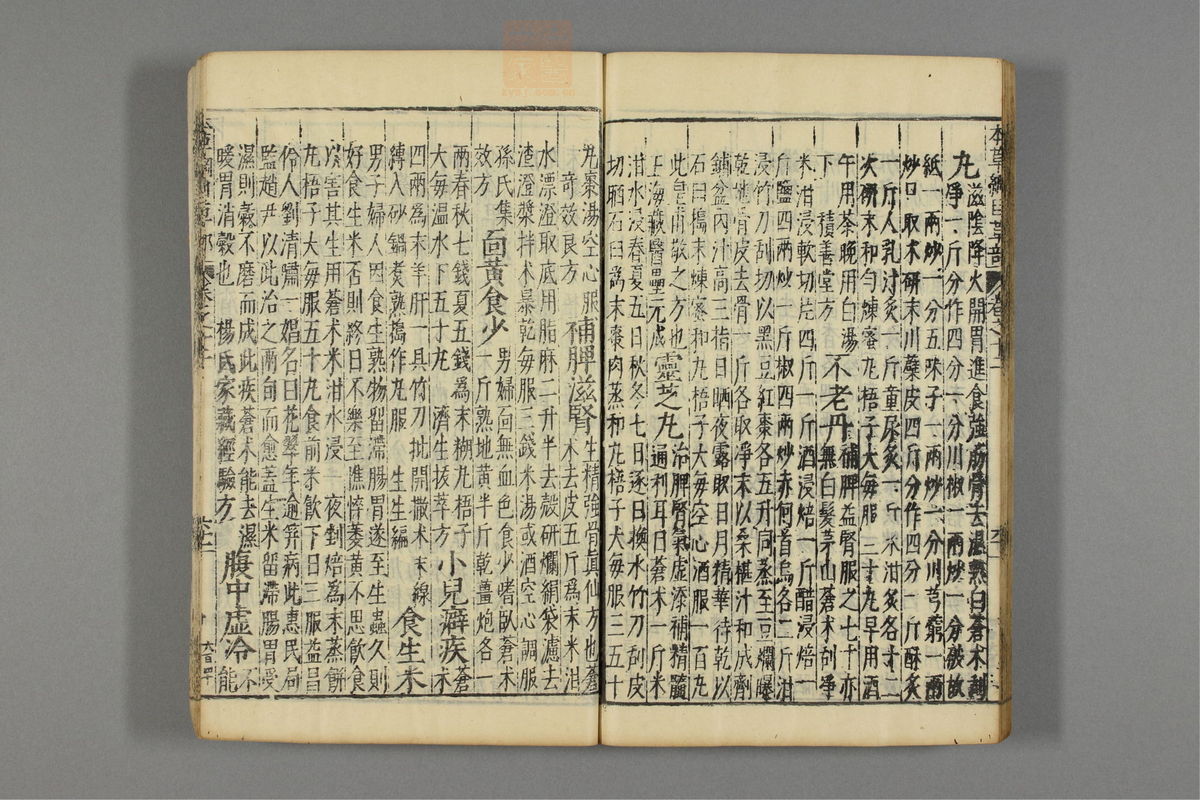 本草綱目草部 卷之十二
丸滋陰降火開胃進食強筋骨去濕熱白蒼朮刮
淨一斤分作四分一分川椒一兩炒一分破故
紙一兩炒一分五味子一兩炒一分川芎藭一兩
炒只取朮研末川蘗皮四斤分作四分一斤酥炙
一斤人乳汁炙一斤童尿炙一斤米泔炙各十二
次研末和勻煉蜜丸梧子大每服三十丸早用酒
午用茶晚用白湯
下 積善堂方 不老丹補脾益腎服之七十亦無白髮茅山蒼朮刮淨
米泔浸軟切片四斤一斤酒浸焙一斤醋浸焙一
斤鹽四兩炒一斤椒四兩炒赤何首烏各二斤泔
浸竹刀刮切以黑豆紅棗各五升同蒸至豆爛曝
乾地骨皮去骨一斤各取淨末以桑椹汁和成劑
鋪盆內汁高三指日晒夜露取日月精華待乾以
石臼搗末煉蜜和丸梧子大每空心酒服一百丸
此皇甫敬之方也
王海藏醫壘元戎 靈芝丸治脾腎氣虛添補精髓通利耳目蒼朮一斤米
泔水浸春夏五日秋冬七日逐日換水竹刀刮皮
切晒石臼爲末棗肉蒸和丸梧子大每服三五十
丸棗湯空心服
奇效良方 補脾滋腎生精強骨眞仙方也蒼朮去皮五斤爲末米泔
水漂澄取底用脂麻二升半去殼研爛絹袋濾去
渣澄漿拌朮暴乾每服三錢米湯或酒空心調服
孫氏集
效方 面黃食少男婦面無血色食少嗜臥蒼朮一斤熟地黃半斤乾薑炮各一
兩春秋七錢夏五錢爲末糊丸梧子
大每溫水下五十丸 濟生拔萃方 小兒癖疾蒼朮
四兩爲末羊肝一具竹刀批開撒朮末線
縛入砂鍋煮熟搗作丸服 生生編 食生米
男子婦人因食生熟物留滯腸胃遂至生蟲久則
好食生米否則終日不樂至憔悴萎黃不思飲食
以害其生用蒼朮米泔水浸一夜剉焙爲末蒸餅
丸梧子大每服五十丸食前米飲下日三服益昌
伶人劉清嘯一娼名曰花翠年逾笄病此惠民局
監趙尹以此治之兩旬而愈蓋生米留滯腸胃受
濕則穀不磨而成此疾蒼朮能去濕
暖胃消穀也 楊氏家藏經驗方 腹中虛冷不能